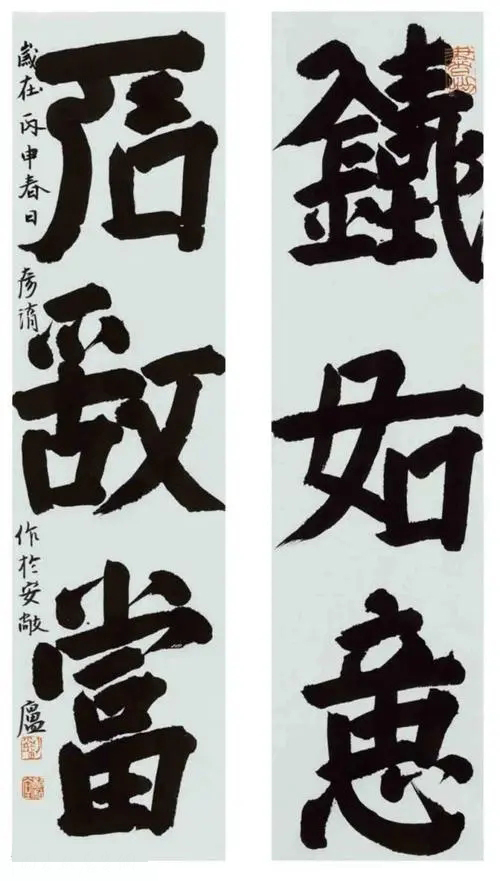 鐵如意
石敢當
歲在丙申春日彥
作於安敞廬